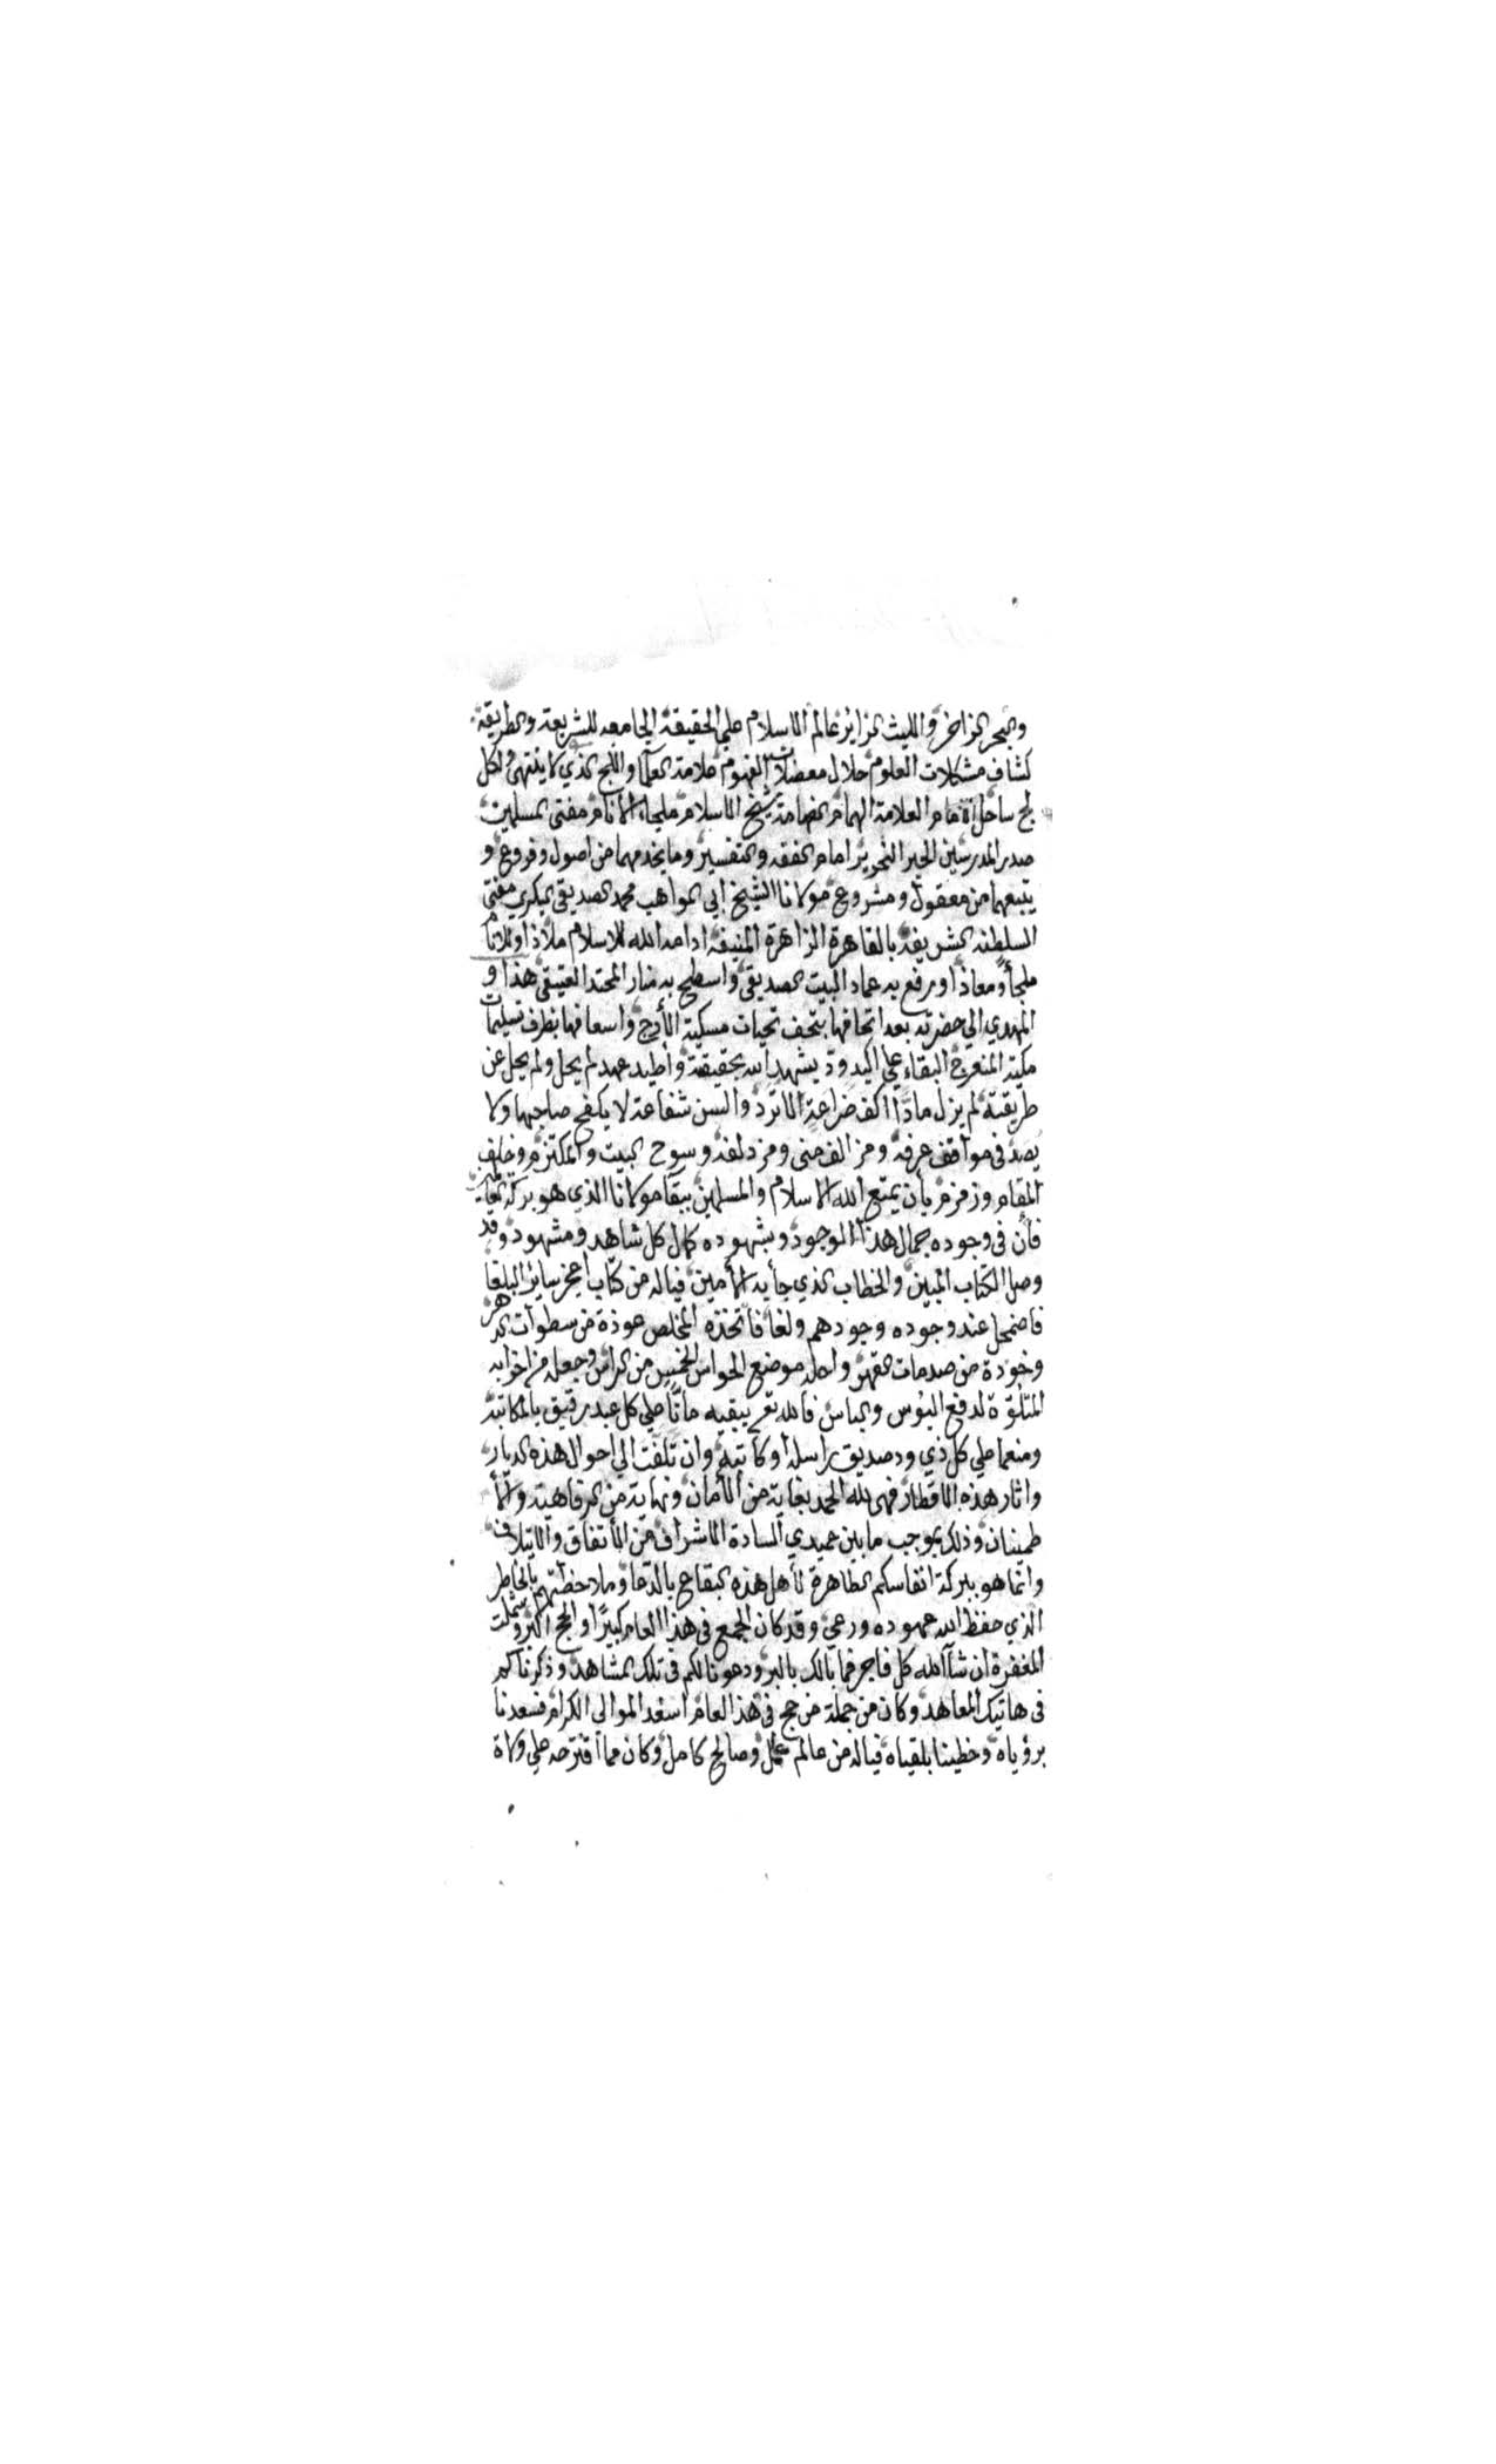 والبحر الزاخر والليث الزاير عالم الاسلام علي الحقيقة الجامعه للشريعة والطريقة
كشاف مشكلات العلوم حلال معضلات الفهوم علامة العلما واللج الذي لا ينتهي ولكل
لج ساحل الامام العلامة الهمام الفهامة شيخ الاسلام ملجاء الانام مفتى المسلمين
صدر المدرسين الحبر النحرير امام الفقه والتفسير وما يخدمهما من اصول وفروع و
يتبعهما من معقول ومشروع مولانا الشيخ ابي المواهب محمد الصديقي البكري مفتي
السلطنه الشريفة بالقاهرة الزاهرة المنيفه ادامه الله للاسلام ملاذا وللانام
ملجأ ومعاذا ورفع به عماد البيت الصديقي واسطع به منار المحتد العتيقي هذا و
المهدي الي حضرته بعد اتحافها بتحف تحيات مسكية الأرج واسعافها بطرف تسليمات
مكية المنعرج البقاء علي اكيد ود يشهد الله بحقيقته وأطيد عهد لم يحل ولم يحل عن
طريقته لم يزل مادًا اكف ضراعة لا ترد والسن شفاعة لا يكفح صاحبها ولا
يصد في مواقف عرفه ومزالف منى ومزدلفه وسوح البيت والملتزم وخلف
المقام وزمزم بأن يمتع الله الاسلام والمسلمين ببقا مولانا الذي هو بركة العالمين
فان في وجوده جمال هذا الوجود وبشهوده كمال كل شاهد ومشهود وقد
وصل الكتاب المبين والخطاب الذي جأ به الأمين فياله من كتاب اعجز ساير البلغا
فاضمحل عند وجوده وجودهم ولغا فاتخذه المخلص عوذة من سطوات الدهر
وخوذة من صدمات القهر واحله موضع الحواس الخمس من الراس وجعله من احزابه
المتلوة لدفع البؤس والباس فالله تعـ يبقيه مانًّا علي كل عبد رقيق بالمكاتبة
ومنعما علي كل ذي ود صديق براسله او كاتبه وان تلفت الي احوال هذه الديار
واثار هذه الاقطار فهي لله الحمد بغاية من الأمان ونهاية من الرفاهية والأ
طمينان وذلك بموجب ما بين عميدي السادة الاشراف من الأتفاق والايتلاف
وانما هو ببركة انفاسكم الطاهرة لأهل هذه البقاع بالدعا وملاحضتهم بالخاطر
الذي حفظ الله عهوده ورعي وقد كان الجمع في هذا العام كبيرًا والحج اكبر وشملت
المغفرة ان شآ الله كل فاجر فما بالك بالبر ودعونا لكم في تلك المشاهد وذكرناكم
في هاتيك المعاهد وكان من جملة من حج في هذا العام اسعد الموالي الكرام فسعدنا
برؤياه وخطينا بلقياه فياله من عالم عمل وصالح كامل وكان مما اقترحه علي ولاة